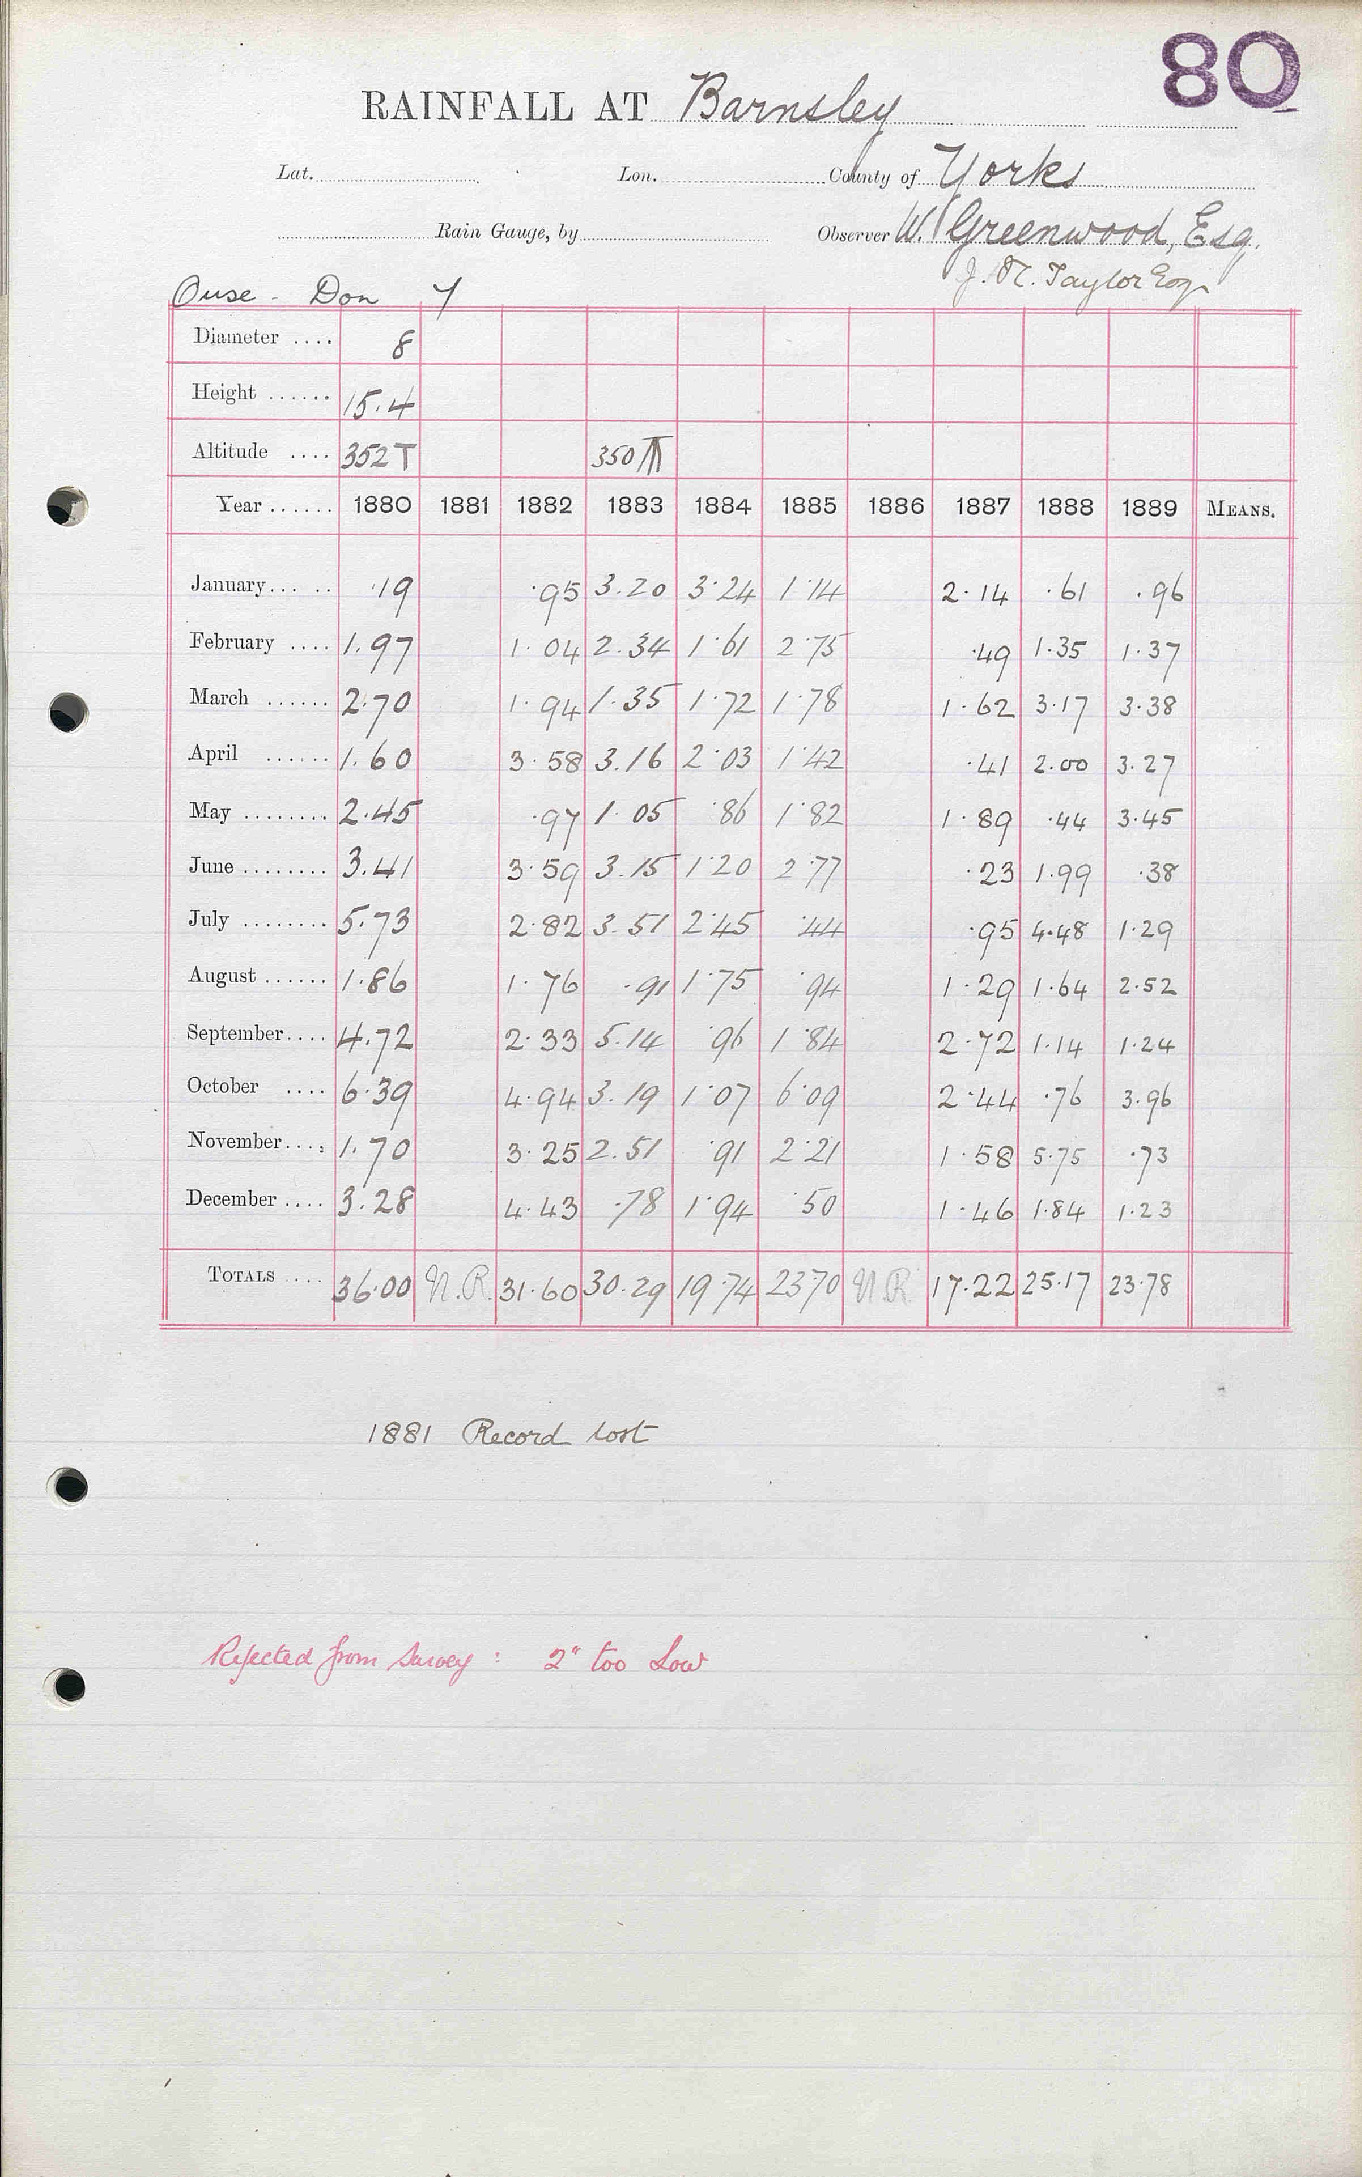 80
RAINFALL AT Barnsley
Lat. Lon. County of Yorks
Rain Gauge, by Observer W. Greenwood, Esq.
J. H. Taylor Esq
Ouse - Don Y
Diameter .... 8
Height ...... 15.4
Altitude .... 352 T 350 T
Year ...... 1880 1881 1882 1883 1884 1885 1886 1887 1888 1889 MEANS.
January... .. .19 .95 3.20 3.24 1.14 2.14 .61 .96
February .... 1.97 1.04 2.34 1.61 2.75 .49 1.35 1.37
March ...... 2.70 1.94 1.35 1.72 1.78 1.62 3.17 3.38
April ...... 1.60 3.58 3.16 2.03 1.42 .41 2.00 3.27
May ........ 2.45 .97 1.05 .86 1.82 1.89 .44 3.45
June ........ 3.41 3.59 3.15 1.20 2.77 .23 1.99 .38
July ........ 5.73 2.82 3.51 2.45 .44 .95 4.48 1.29
August ...... 1.86 1.76 .91 1.75 .94 1.29 1.64 2.52
September.... 4.72 2.33 5.14 .96 1.84 2.72 1.14 1.24
October .... 6.39 4.94 3.19 1.07 6.09 2.44 .76 3.96
November.... 1.70 3.25 2.51 .91 2.21 1.58 5.75 .73
December .... 3.28 4.43 .78 1.94 .50 1.46 1.84 1.23
TOTALS .... 36.00 N.R. 31.60 30.29 19.74 23.70 N.R. 17.22 25.17 23.78
1881 Record lost
Rejected from Survey : 2" too Low